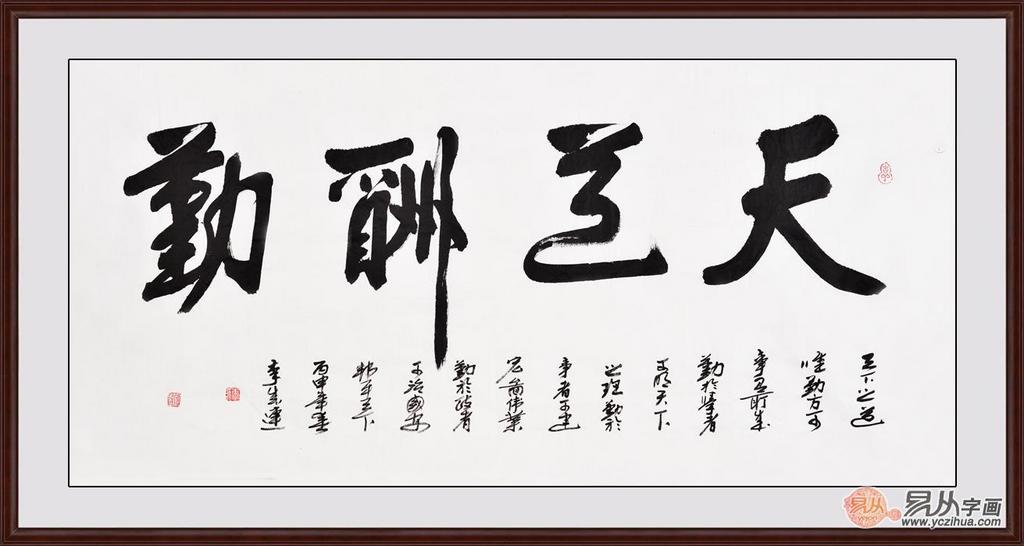 天道酬勤
天下之道
唯勤方可
事有所成
勤於学者
可明天下
之理勤於
事者可建
宏图伟业
勤於政者
可治国安
邦平天下
丙申年春
李成连
易从字画
www.yczihua.com